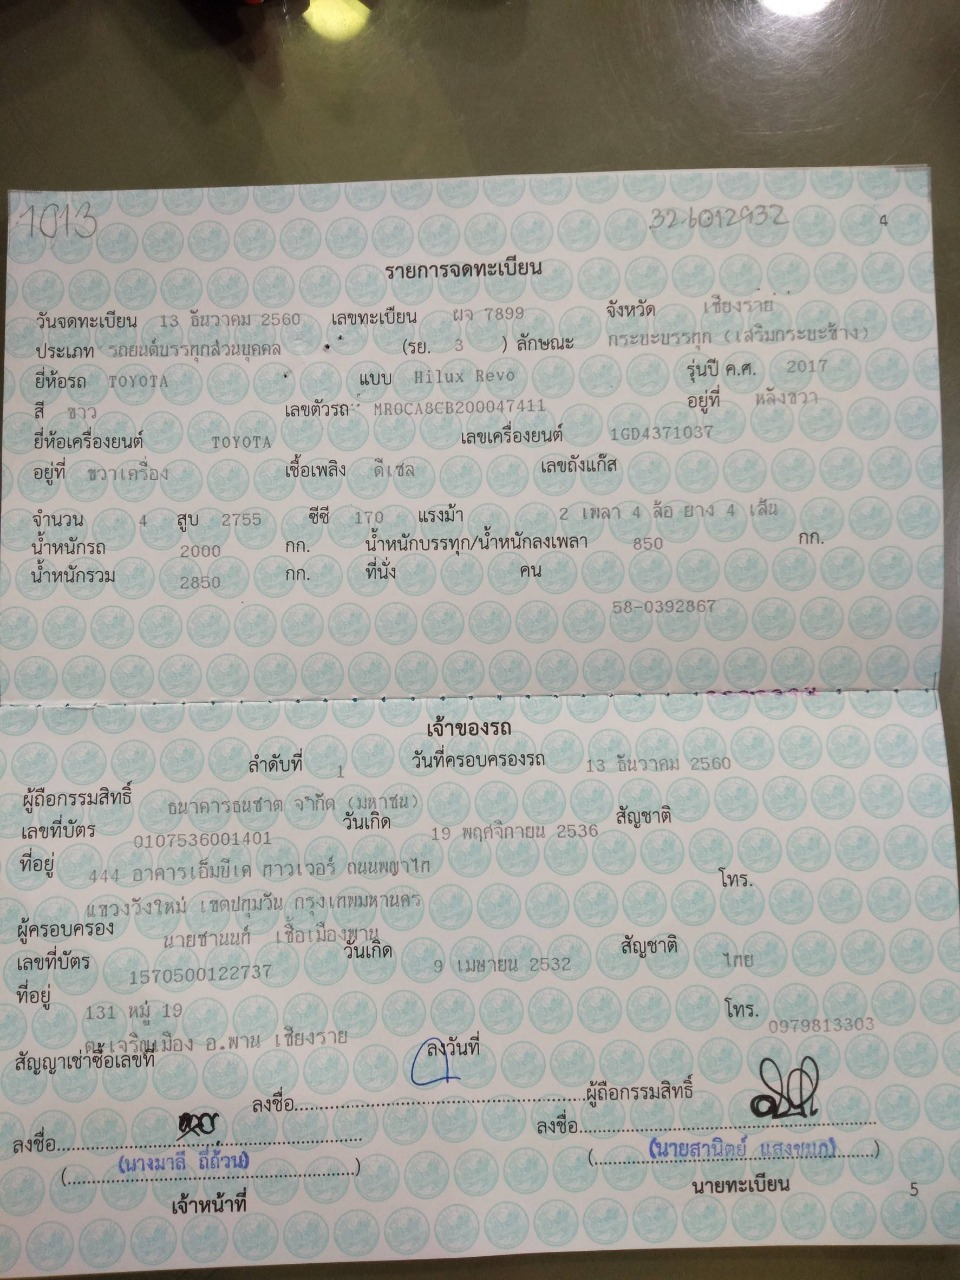 1013 326012932 4
รายการจดทะเบียน
วันจดทะเบียน 13 ธันวาคม 2560 เลขทะเบียน ผจ 7899 จังหวัด เชียงราย
ประเภท รถยนต์บรรทุกส่วนบุคคล (รย. 3 ) ลักษณะ กระบะบรรทุก (เสริมกระบะข้าง)
ยี่ห้อรถ TOYOTA แบบ Hilux Revo รุ่นปี ค.ศ. 2017
สี ขาว เลขตัวรถ MR0CA8CB200047411 อยู่ที่ หลังขวา
ยี่ห้อเครื่องยนต์ TOYOTA เลขเครื่องยนต์ 1GD4371037
อยู่ที่ ขวาเครื่อง เชื้อเพลิง ดีเซล เลขถังแก๊ส
จำนวน 4 สูบ 2755 ซีซี 170 แรงม้า 2 เพลา 4 ล้อ ยาง 4 เส้น
น้ำหนักรถ 2000 กก. น้ำหนักบรรทุก/น้ำหนักลงเพลา 850 กก.
น้ำหนักรวม 2850 กก. ที่นั่ง คน
58-0392867
เจ้าของรถ
ลำดับที่ 1 วันที่ครอบครองรถ 13 ธันวาคม 2560
ผู้ถือกรรมสิทธิ์ ธนาคารธนชาต จำกัด (มหาชน)
เลขที่บัตร 0107536001401 วันเกิด 19 พฤศจิกายน 2536 สัญชาติ
ที่อยู่ 444 อาคารเอ็มบีเค ทาวเวอร์ ถนนพญาไท
แขวงวังใหม่ เขตปทุมวัน กรุงเทพมหานคร โทร.
ผู้ครอบครอง นายชานนท์ เชื้อเมืองพาน
เลขที่บัตร 1570500122737 วันเกิด 9 เมษายน 2532 สัญชาติ ไทย
ที่อยู่ 131 หมู่ 19 โทร. 0979813303
ต.เจริญเมือง อ.พาน เชียงราย
สัญญาเช่าซื้อเลขที่ ลงวันที่
ลงชื่อ ผู้ถือกรรมสิทธิ์
ลงชื่อ ลงชื่อ
(นางมาลี ถี่ถ้วน) (นายสานิตย์ แสงขนก)
เจ้าหน้าที่ นายทะเบียน
5